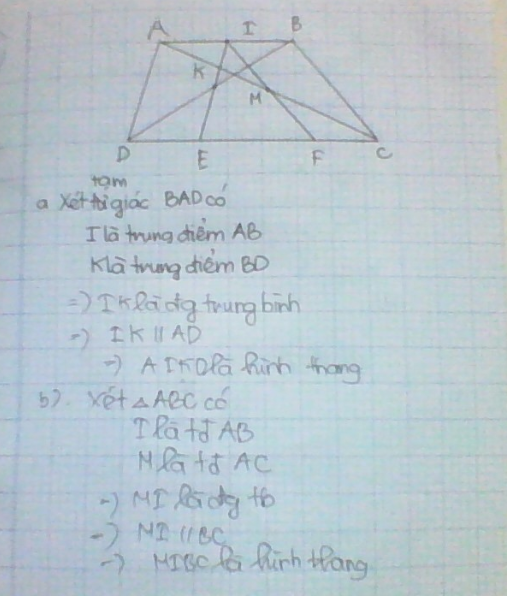 A I B
K
M
D E F C
tam
a Xét tứ giác BAD có
I là trung điểm AB
K là trung điểm BD
=) IK là đg trung bình
=) IK // AD
=) AIKD là hình thang
b). Xét △ABC có
I là tđ AB
M là tđ AC
=) MI là đg tb
=) MI // BC
=) MIBC là hình thang